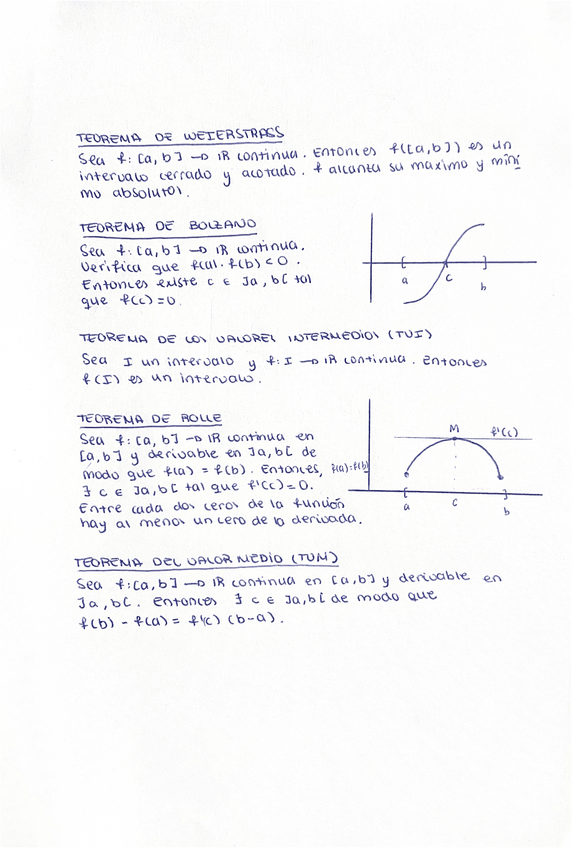 TEOREMA DE WEIERSTRASS
Sea f: [a, b] → IR continua. Entonces f([a, b]) es un
intervalo cerrado y acotado. f alcanza su maximo y míni
mo absolutos.
TEOREMA DE BOLZANO
Sea f: [a, b] → IR continua.
Verifica que f(a) · f(b) < 0.
Entonces existe c ∈ ]a, b[ tal
que f(c) = 0.
a
c
b
TEOREMA DE LOS VALORES INTERMEDIOS (TVI)
Sea I un intervalo y f: I → IR continua. Entonces
f(I) es un intervalo.
TEOREMA DE ROLLE
Sea f: [a, b] → IR continua en
[a, b] y derivable en ]a, b[ de
modo que f(a) = f(b). Entonces,
∃ c ∈ ]a, b[ tal que f'(c) = 0.
Entre cada dos ceros de la función
hay al menos un cero de la derivada.
M
f'(c)
f(a)=f(b)
a
c
b
TEOREMA DEL VALOR MEDIO (TVM)
Sea f: [a, b] → IR continua en [a, b] y derivable en
]a, b[. Entonces ∃ c ∈ ]a, b[ de modo que
f(b) - f(a) = f'(c) (b-a).